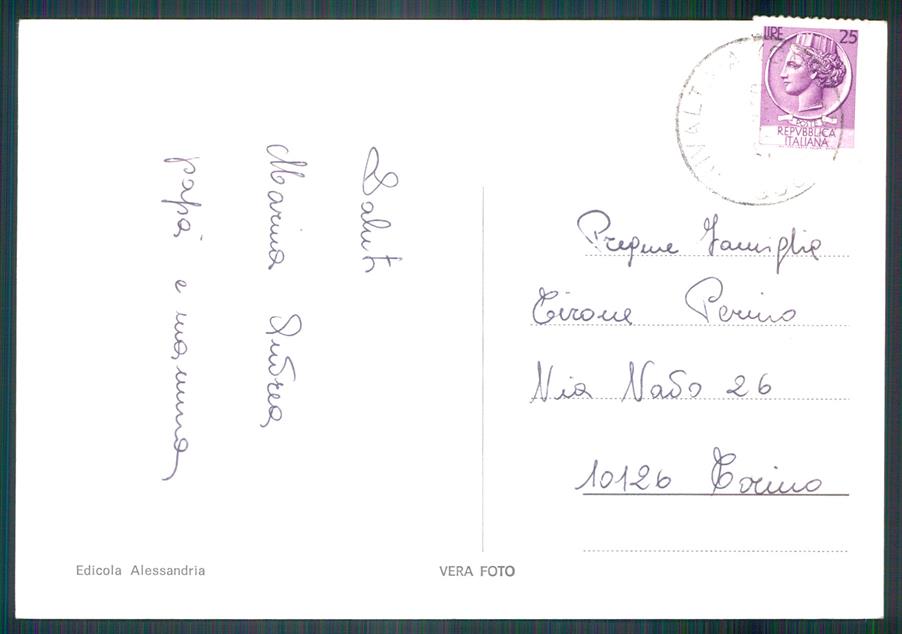 Saluti
Marina Andrea
papà e mamma
LIRE 25
POSTE
REPVBBLICA
ITALIANA
Famiglia
Cirone Perino
Via Nado 26
10126 Torino
Edicola Alessandria
VERA FOTO